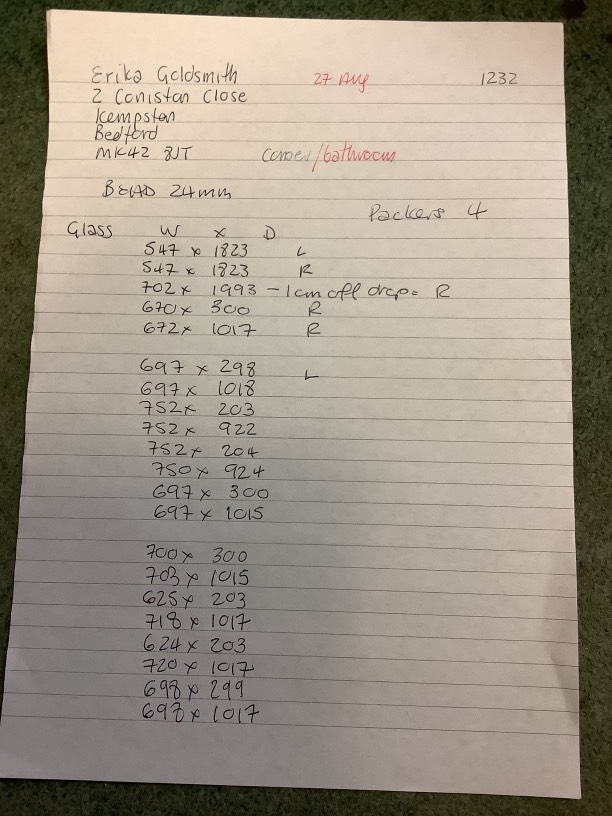 Erika Goldsmith 27 Aug 1232
2 Coniston Close
Kempston
Bedford
MK42 8JT /bathroom
BEAD 24mm
Packers 4
Glass W x D
547 x 1823 L
547 x 1823 R
702 x 1993 - 1cm off drop = R
670 x 300 R
672 x 1017 R
697 x 298 L
697 x 1018
752 x 203
752 x 922
752 x 204
750 x 924
697 x 300
697 x 1015
700 x 300
703 x 1015
625 x 203
718 x 1017
624 x 203
720 x 1017
698 x 299
698 x 1017